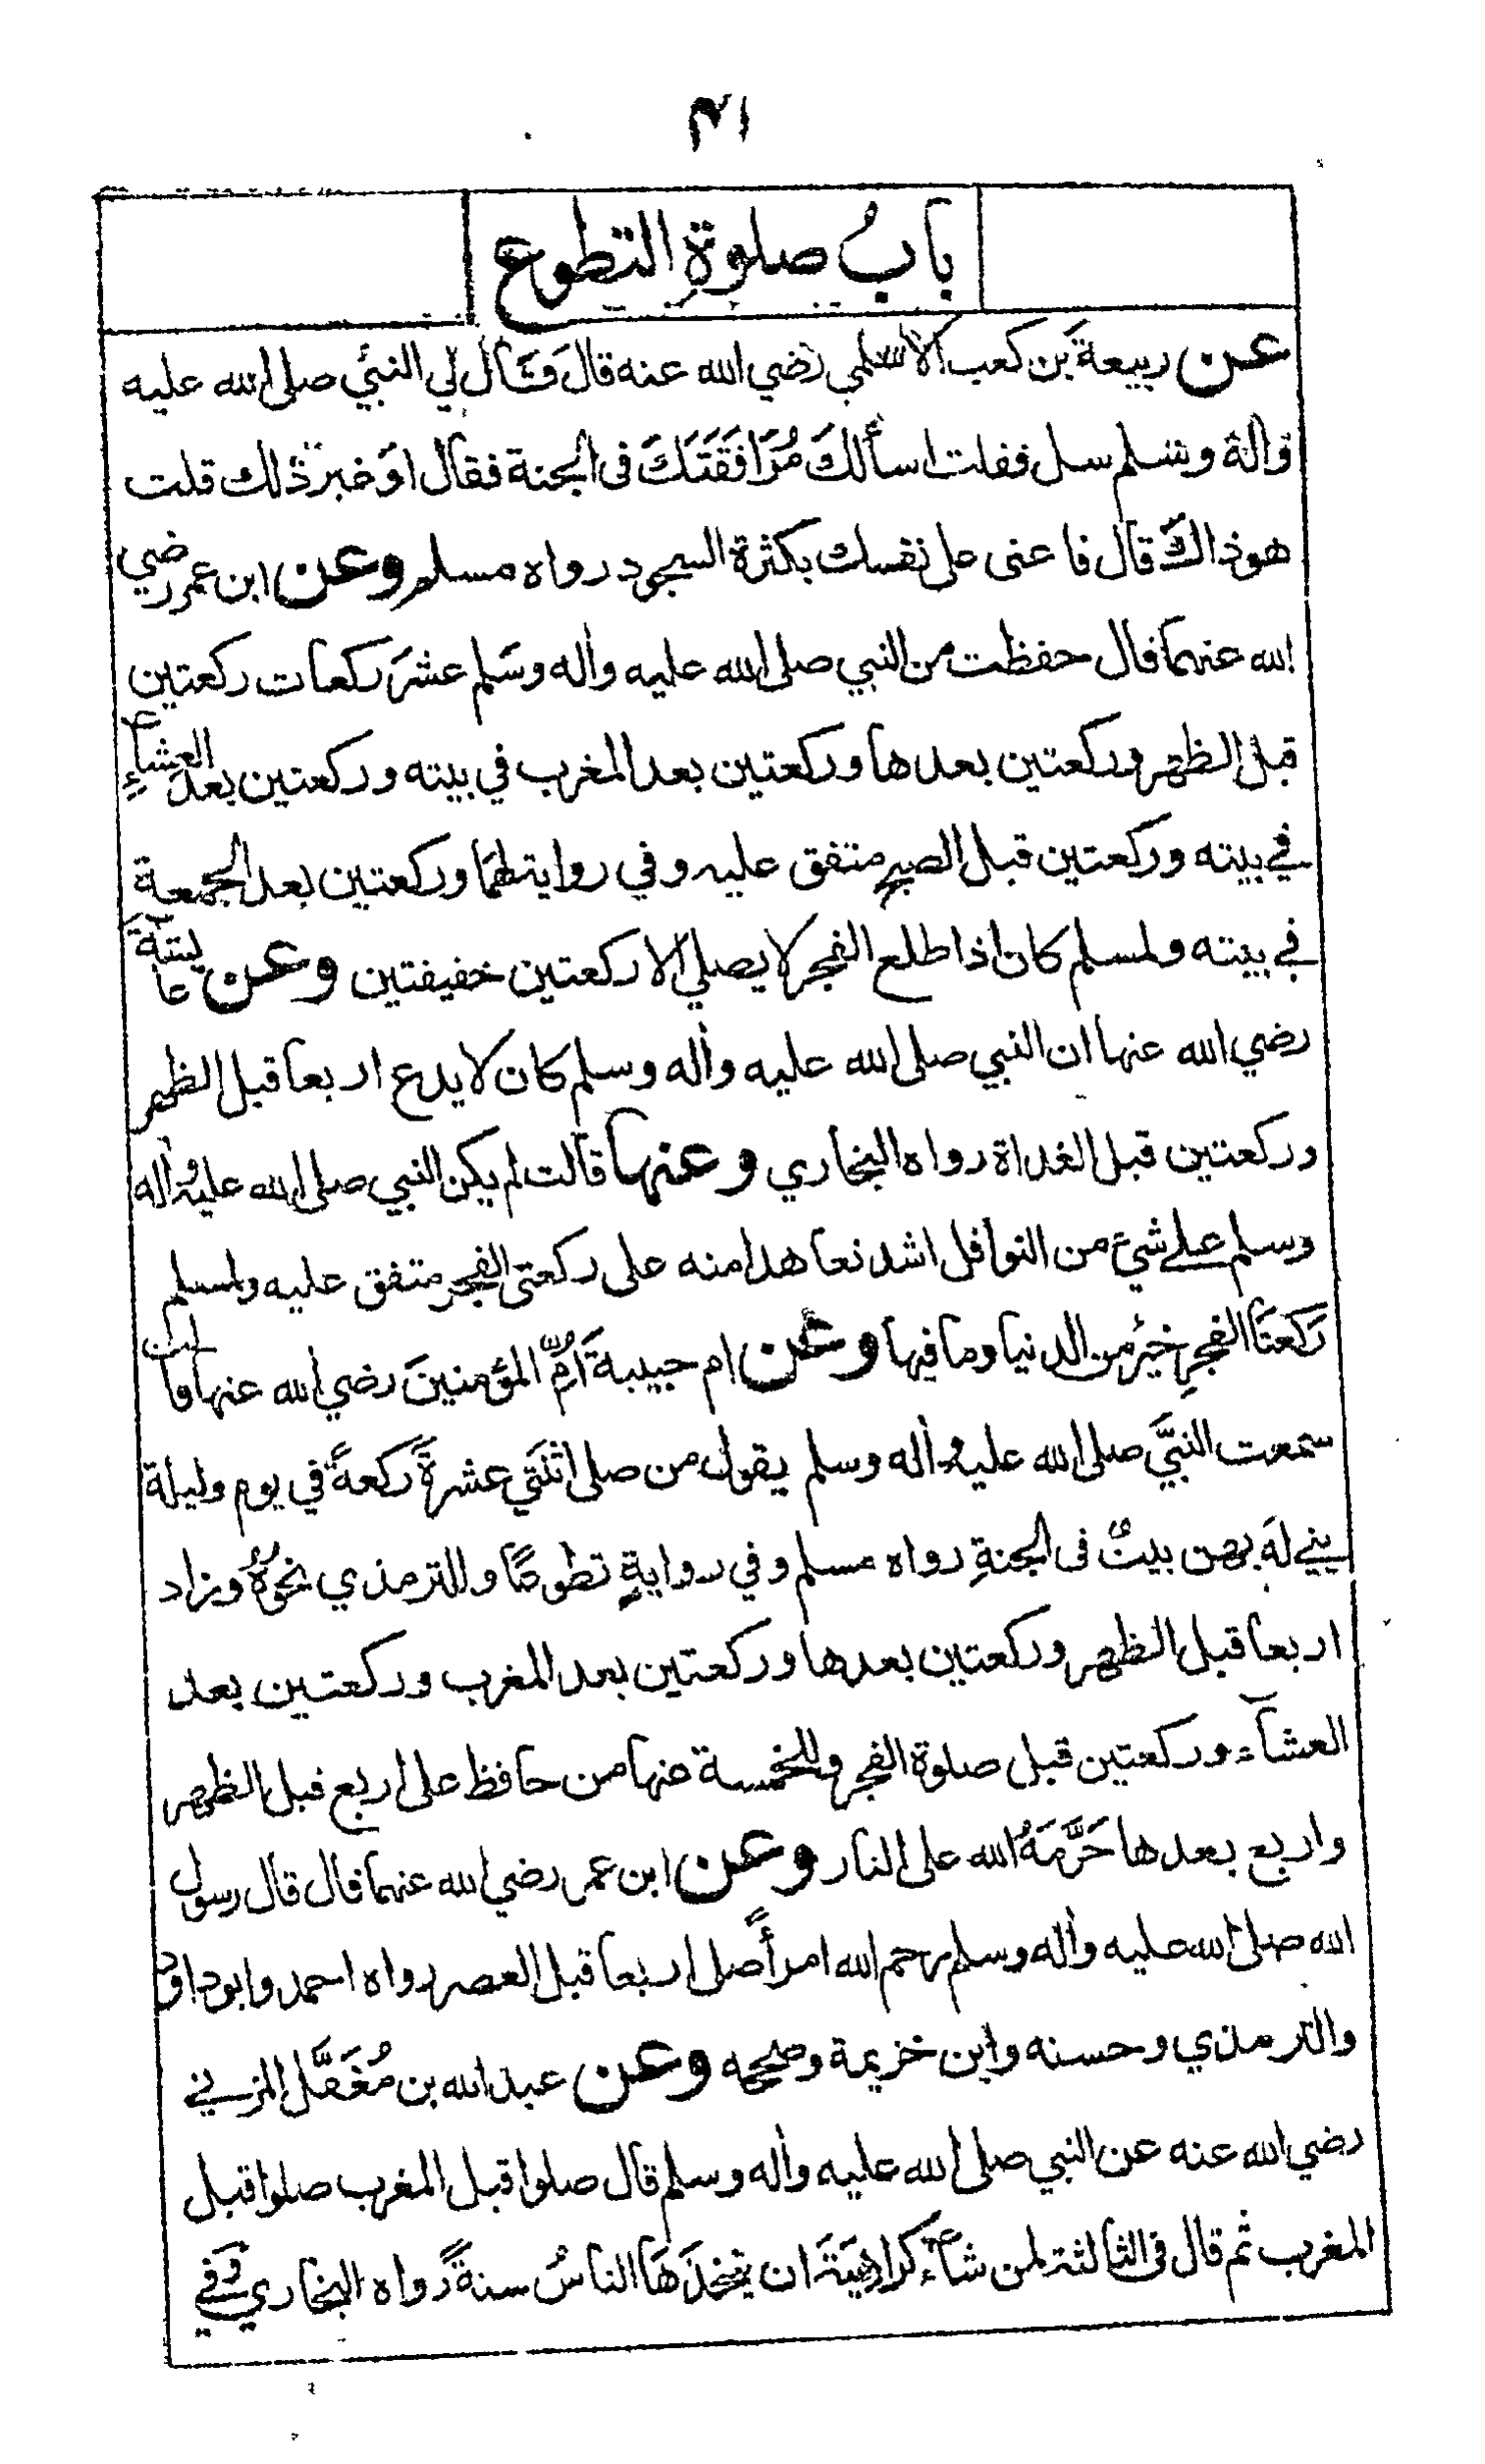 ٤١
بابُ صلوةِ التطوع
عن ربيعةَ بن كعب الاسلمي رضي الله عنه قالَ قَالَ لي النبيُّ صلى الله عليه
وآلهٖ وسلم سل فقلت اسألكَ مُرَافَقَتَكَ فى الجنة فقال اوَ غير ذلك قلت
هو ذاكَ قال فاعنى على نفسك بكثرة السجود رواه مسلم وعن ابن عمر رضي
الله عنهما قال حفظت من النبي صلى الله عليه واٰله وسَلم عشرَ ركعات ركعتين
قبل الظهر وركعتين بعدها وركعتين بعد المغرب في بيته وركعتين بعدَ العشآءِ
في بيته وركعتين قبل الصبحِ متفق عليه وفي روايةٍ لهُمَا وركعتين بعد الجمعة
في بيته ولمسلم كان اذا طلع الفجر لا يصلي الا ركعتين خفيفتين وعن عايشةَ
رضي الله عنها ان النبي صلى الله عليه واٰله وسلم كان لا يدع اربعا قبل الظهر
وركعتين قبل الغداة رواه البخاري وعنها قالت لم يكن النبي صلى الله عليه واٰله
وسلم علے شيء من النوافل اشد تعاهدا منه على ركعتى الفجر متفق عليه ولمسلم
رَكعتَا الفجرِ خيرٌ من الدنيا وما فيها وعن ام حبيبةَ اُمِّ المؤمنينَ رضي الله عنها قالت
سمعت النبيَّ صلى الله عليه واٰله وسلم يقول من صلى اثنتَي عشرةَ ركعةً في يوم وليلة
بني لهَ بهن بيتٌ فى الجنةِ رواه مسلم وفي روايةٍ تطوعًا وللترمذي نحوُهُ وزاد
اربعا قبل الظهر وركعتين بعدها وركعتين بعد المغرب وركعتين بعد
العشآء وركعتين قبل صلوة الفجر وللخمسة عنها من حافظ على اربع قبل الظهر
واربع بعدها حَرَّمَهُ الله على النار وعن ابن عمر رضي الله عنهما قال قال رسول
الله صلى الله عليه واٰله وسلم رحم الله امرأً صلى اربعا قبل العصر رواه احمد وابوداود
والترمذي وحسنه وابن خزيمة وصححه وعن عبد الله بن مُغَفَّل المزني
رضي الله عنه عن النبي صلى الله عليه واٰله وسلم قال صلوا قبل المغرب صلوا قبل
المغرب ثم قال فى الثالثة لمن شآءَ كراهِيَةَ ان يتخذَهَا الناسُ سنةً رواه البخاري وَفي